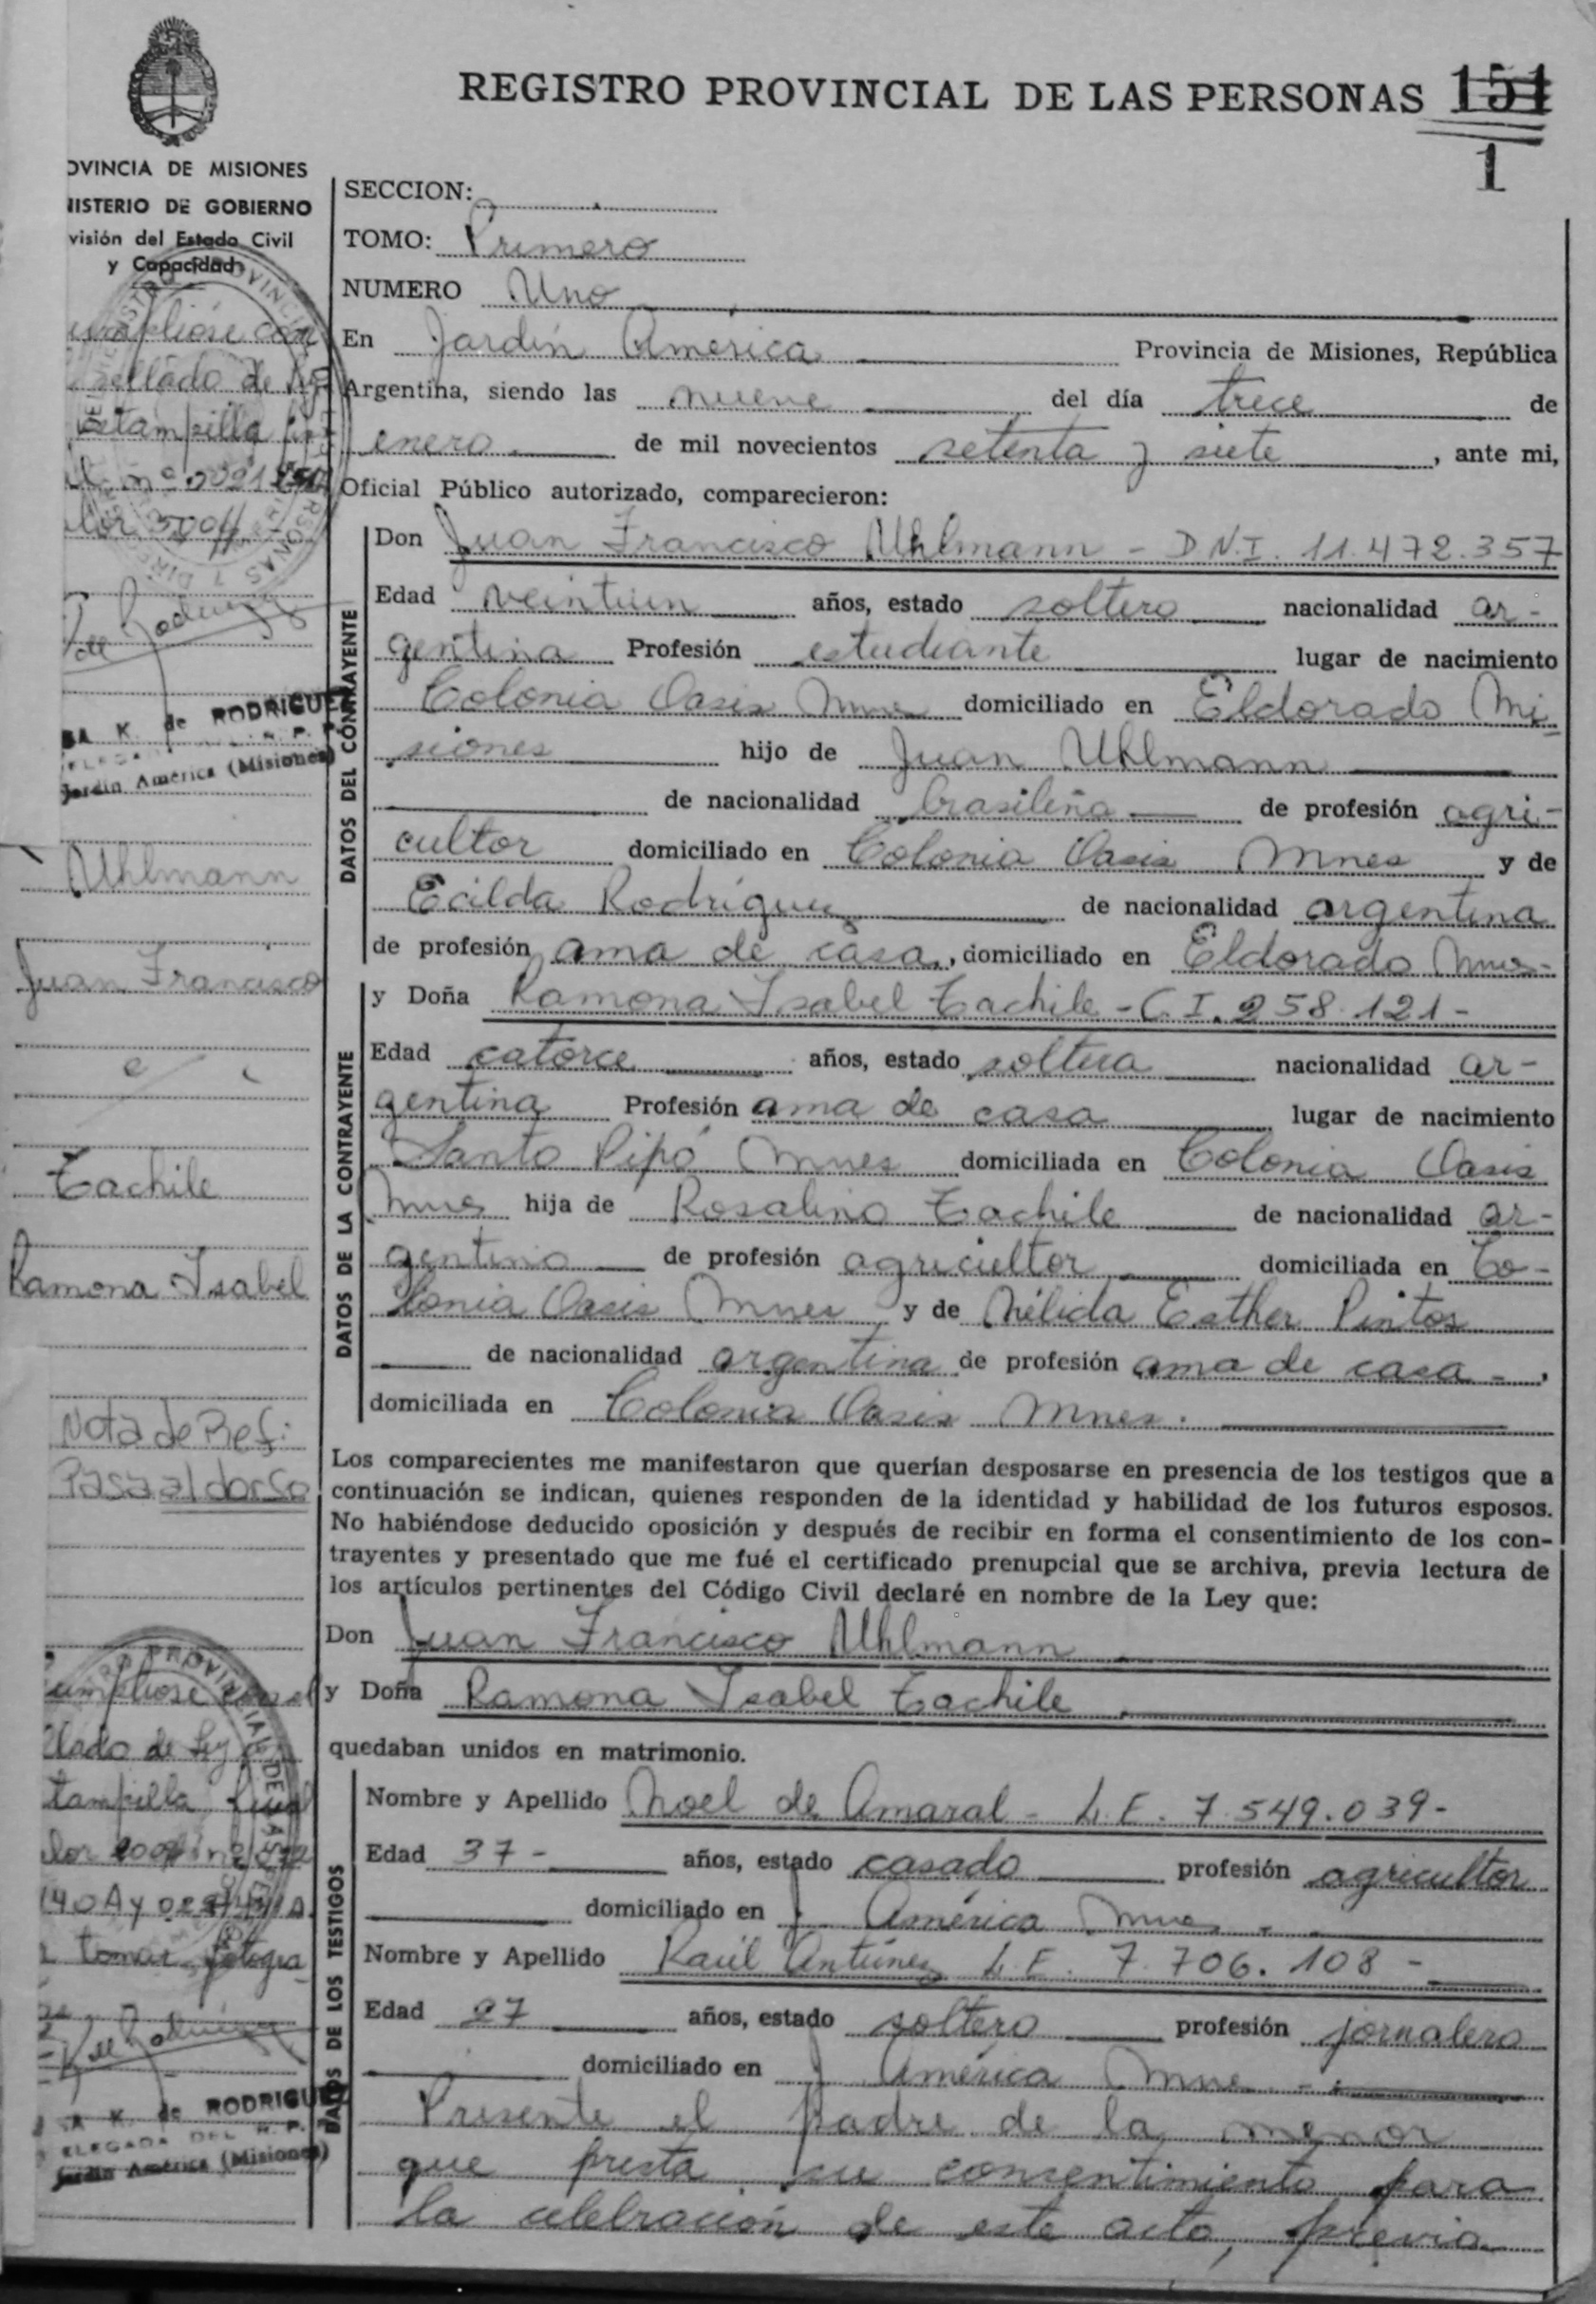 REGISTRO PROVINCIAL DE LAS PERSONAS 151
1
OVINCIA DE MISIONES
NISTERIO DE GOBIERNO
visión del Estado Civil
y Capacidad
SECCION:
TOMO: Primero
NUMERO Uno
En Jardín América Provincia de Misiones, República
Argentina, siendo las nueve del día trece de
enero de mil novecientos setenta y siete, ante mi,
Oficial Público autorizado, comparecieron:
DATOS DEL CONTRAYENTE
Don Juan Francisco Uhlmann - D.N.I. 11.472.357
Edad veintiun años, estado soltero nacionalidad ar-
gentina Profesión estudiante lugar de nacimiento
Colonia Oasis Mnes domiciliado en Eldorado Mi-
siones hijo de Juan Uhlmann
de nacionalidad brasileña de profesión agri-
cultor domiciliado en Colonia Oasis Mnes y de
Ecilda Rodríguez de nacionalidad argentina
de profesión ama de casa, domiciliado en Eldorado Mnes-
DATOS DE LA CONTRAYENTE
y Doña Ramona Isabel Tachile - C.I. 258.121-
Edad catorce años, estado soltera nacionalidad ar-
gentina Profesión ama de casa lugar de nacimiento
Santo Pipó Mnes domiciliada en Colonia Oasis
Mnes hija de Rosalino Tachile de nacionalidad ar-
gentino de profesión agricultor domiciliada en Co-
lonia Oasis Mnes y de Nélida Esther Pintos
de nacionalidad argentina de profesión ama de casa -,
domiciliada en Colonia Oasis Mnes.
Los comparecientes me manifestaron que querían desposarse en presencia de los testigos que a
continuación se indican, quienes responden de la identidad y habilidad de los futuros esposos.
No habiéndose deducido oposición y después de recibir en forma el consentimiento de los con-
trayentes y presentado que me fué el certificado prenupcial que se archiva, previa lectura de
los artículos pertinentes del Código Civil declaré en nombre de la Ley que:
Don Juan Francisco Uhlmann
y Doña Ramona Isabel Tachile
quedaban unidos en matrimonio.
DATOS DE LOS TESTIGOS
Nombre y Apellido Noel de Amaral - L.E. 7.549.039-
Edad 37- años, estado casado profesión agricultor
domiciliado en J. América Mnes.
Nombre y Apellido Raúl Antúnez L.E. 7.706.108-
Edad 27 años, estado soltero profesión jornalero
domiciliado en J. América Mnes
Presente el padre de la menor
que presta su consentimiento para
la celebración de este acto, previa
umplióse con
sellado de
estampilla
RODRIGUEZ
Jardín América (Misiones)
Uhlmann
Juan Francisco
Tachile
Ramona Isabel
Nota de Ref:
Pasa al dorso
umplióse
llado de Ley
tampilla fiscal
tomar fotogra
SA K. de RODRIGUEZ
ELEGADA DEL R. P.
Jardín América (Misiones)